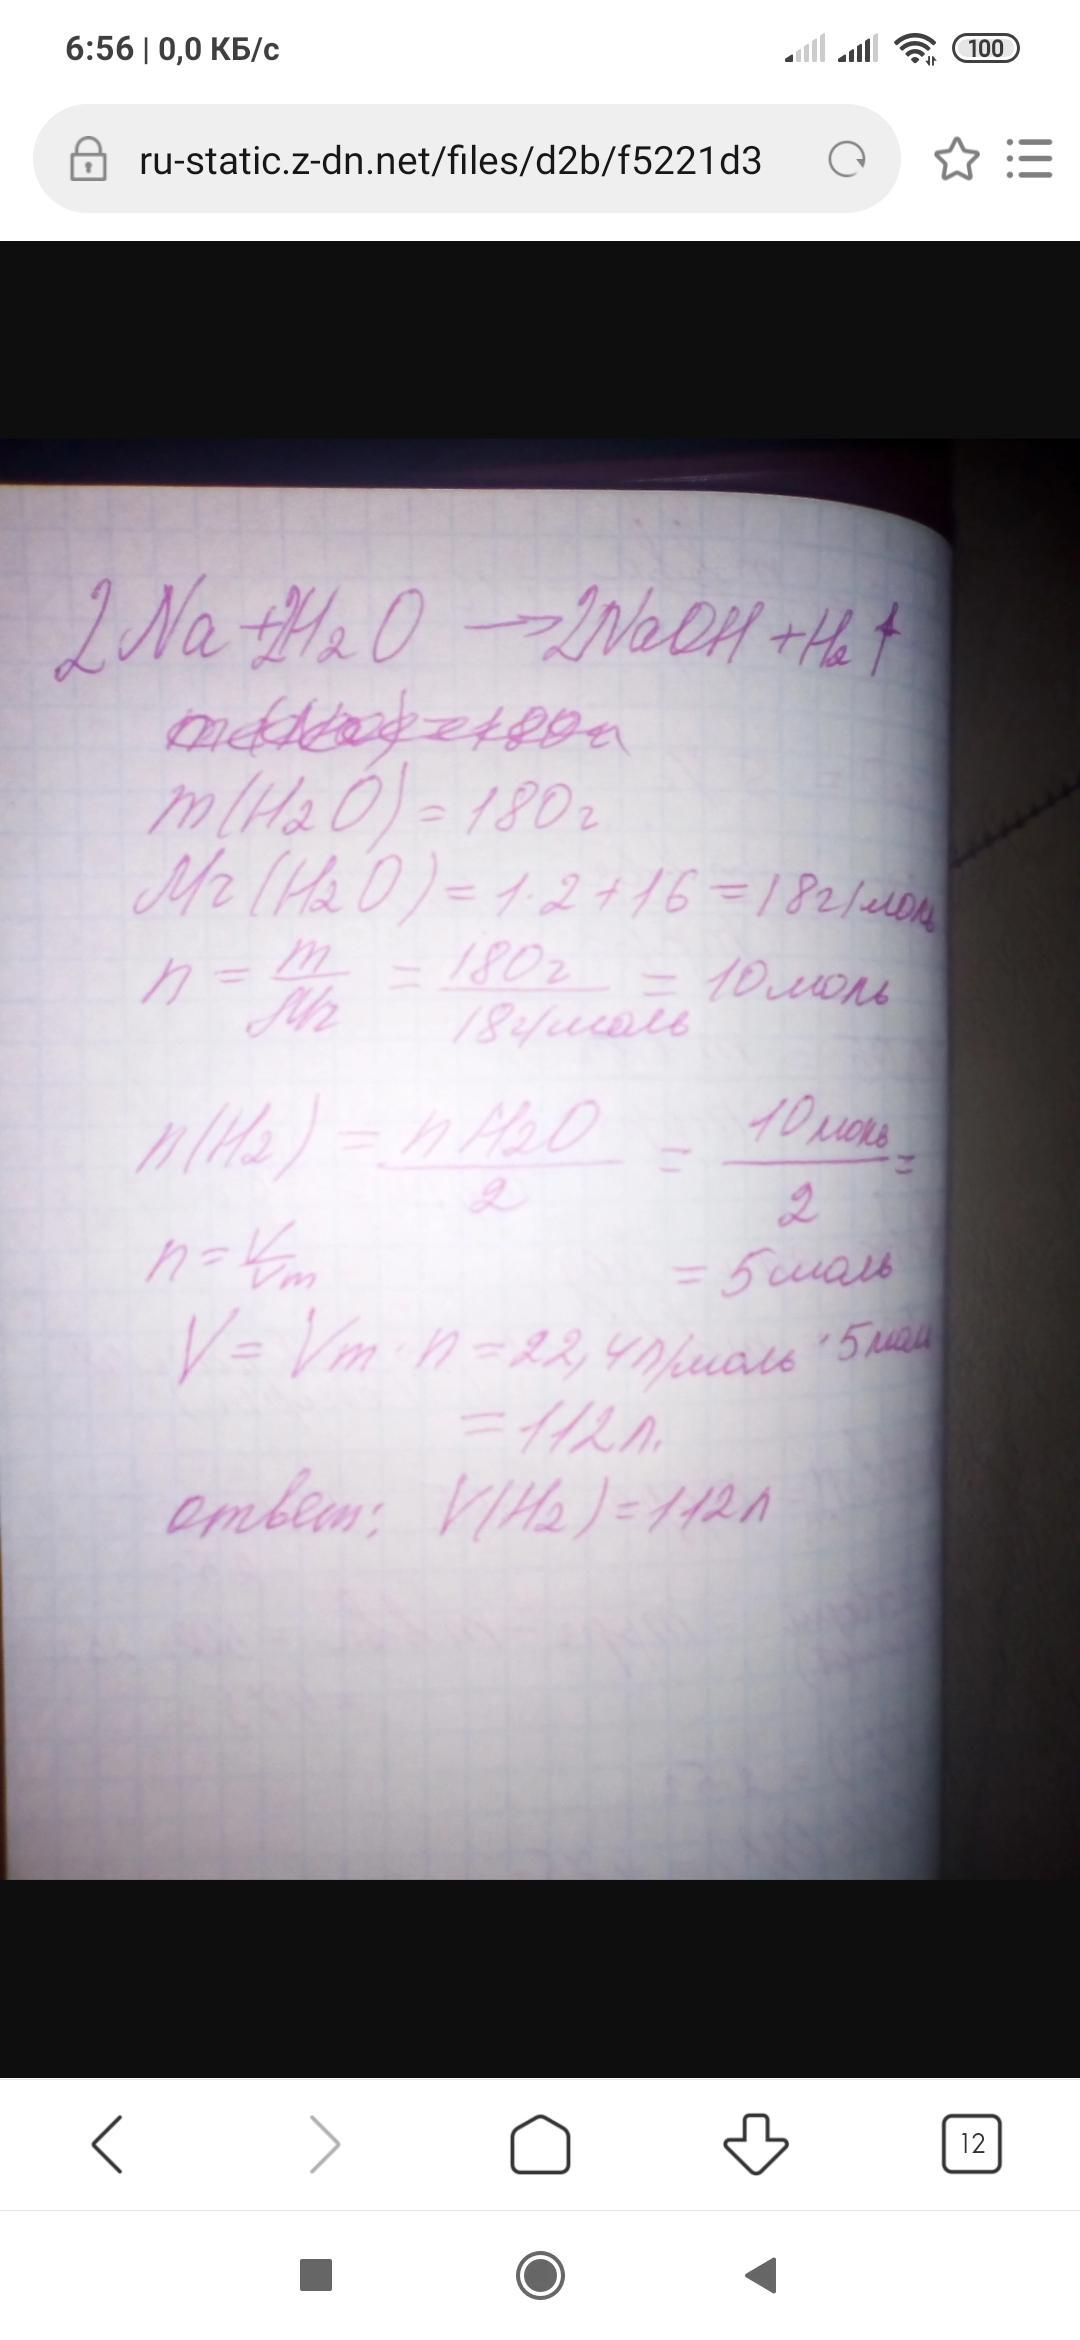 6:56 | 0,0 КБ/с
100
ru-static.z-dn.net/files/d2b/f5221d3
2Na+2H₂O → 2NaOH + H₂↑
m(H₂O) = 180г
Mr(H₂O) = 1·2+16 = 18г/моль
n = m/Mr = 180г/18г/моль = 10моль
n(H₂) = nH₂O/2 = 10моль/2 =
n = V/Vm = 5моль
V = Vm·n = 22,4л/моль · 5мол
= 112л.
ответ: V(H₂) = 112л
12